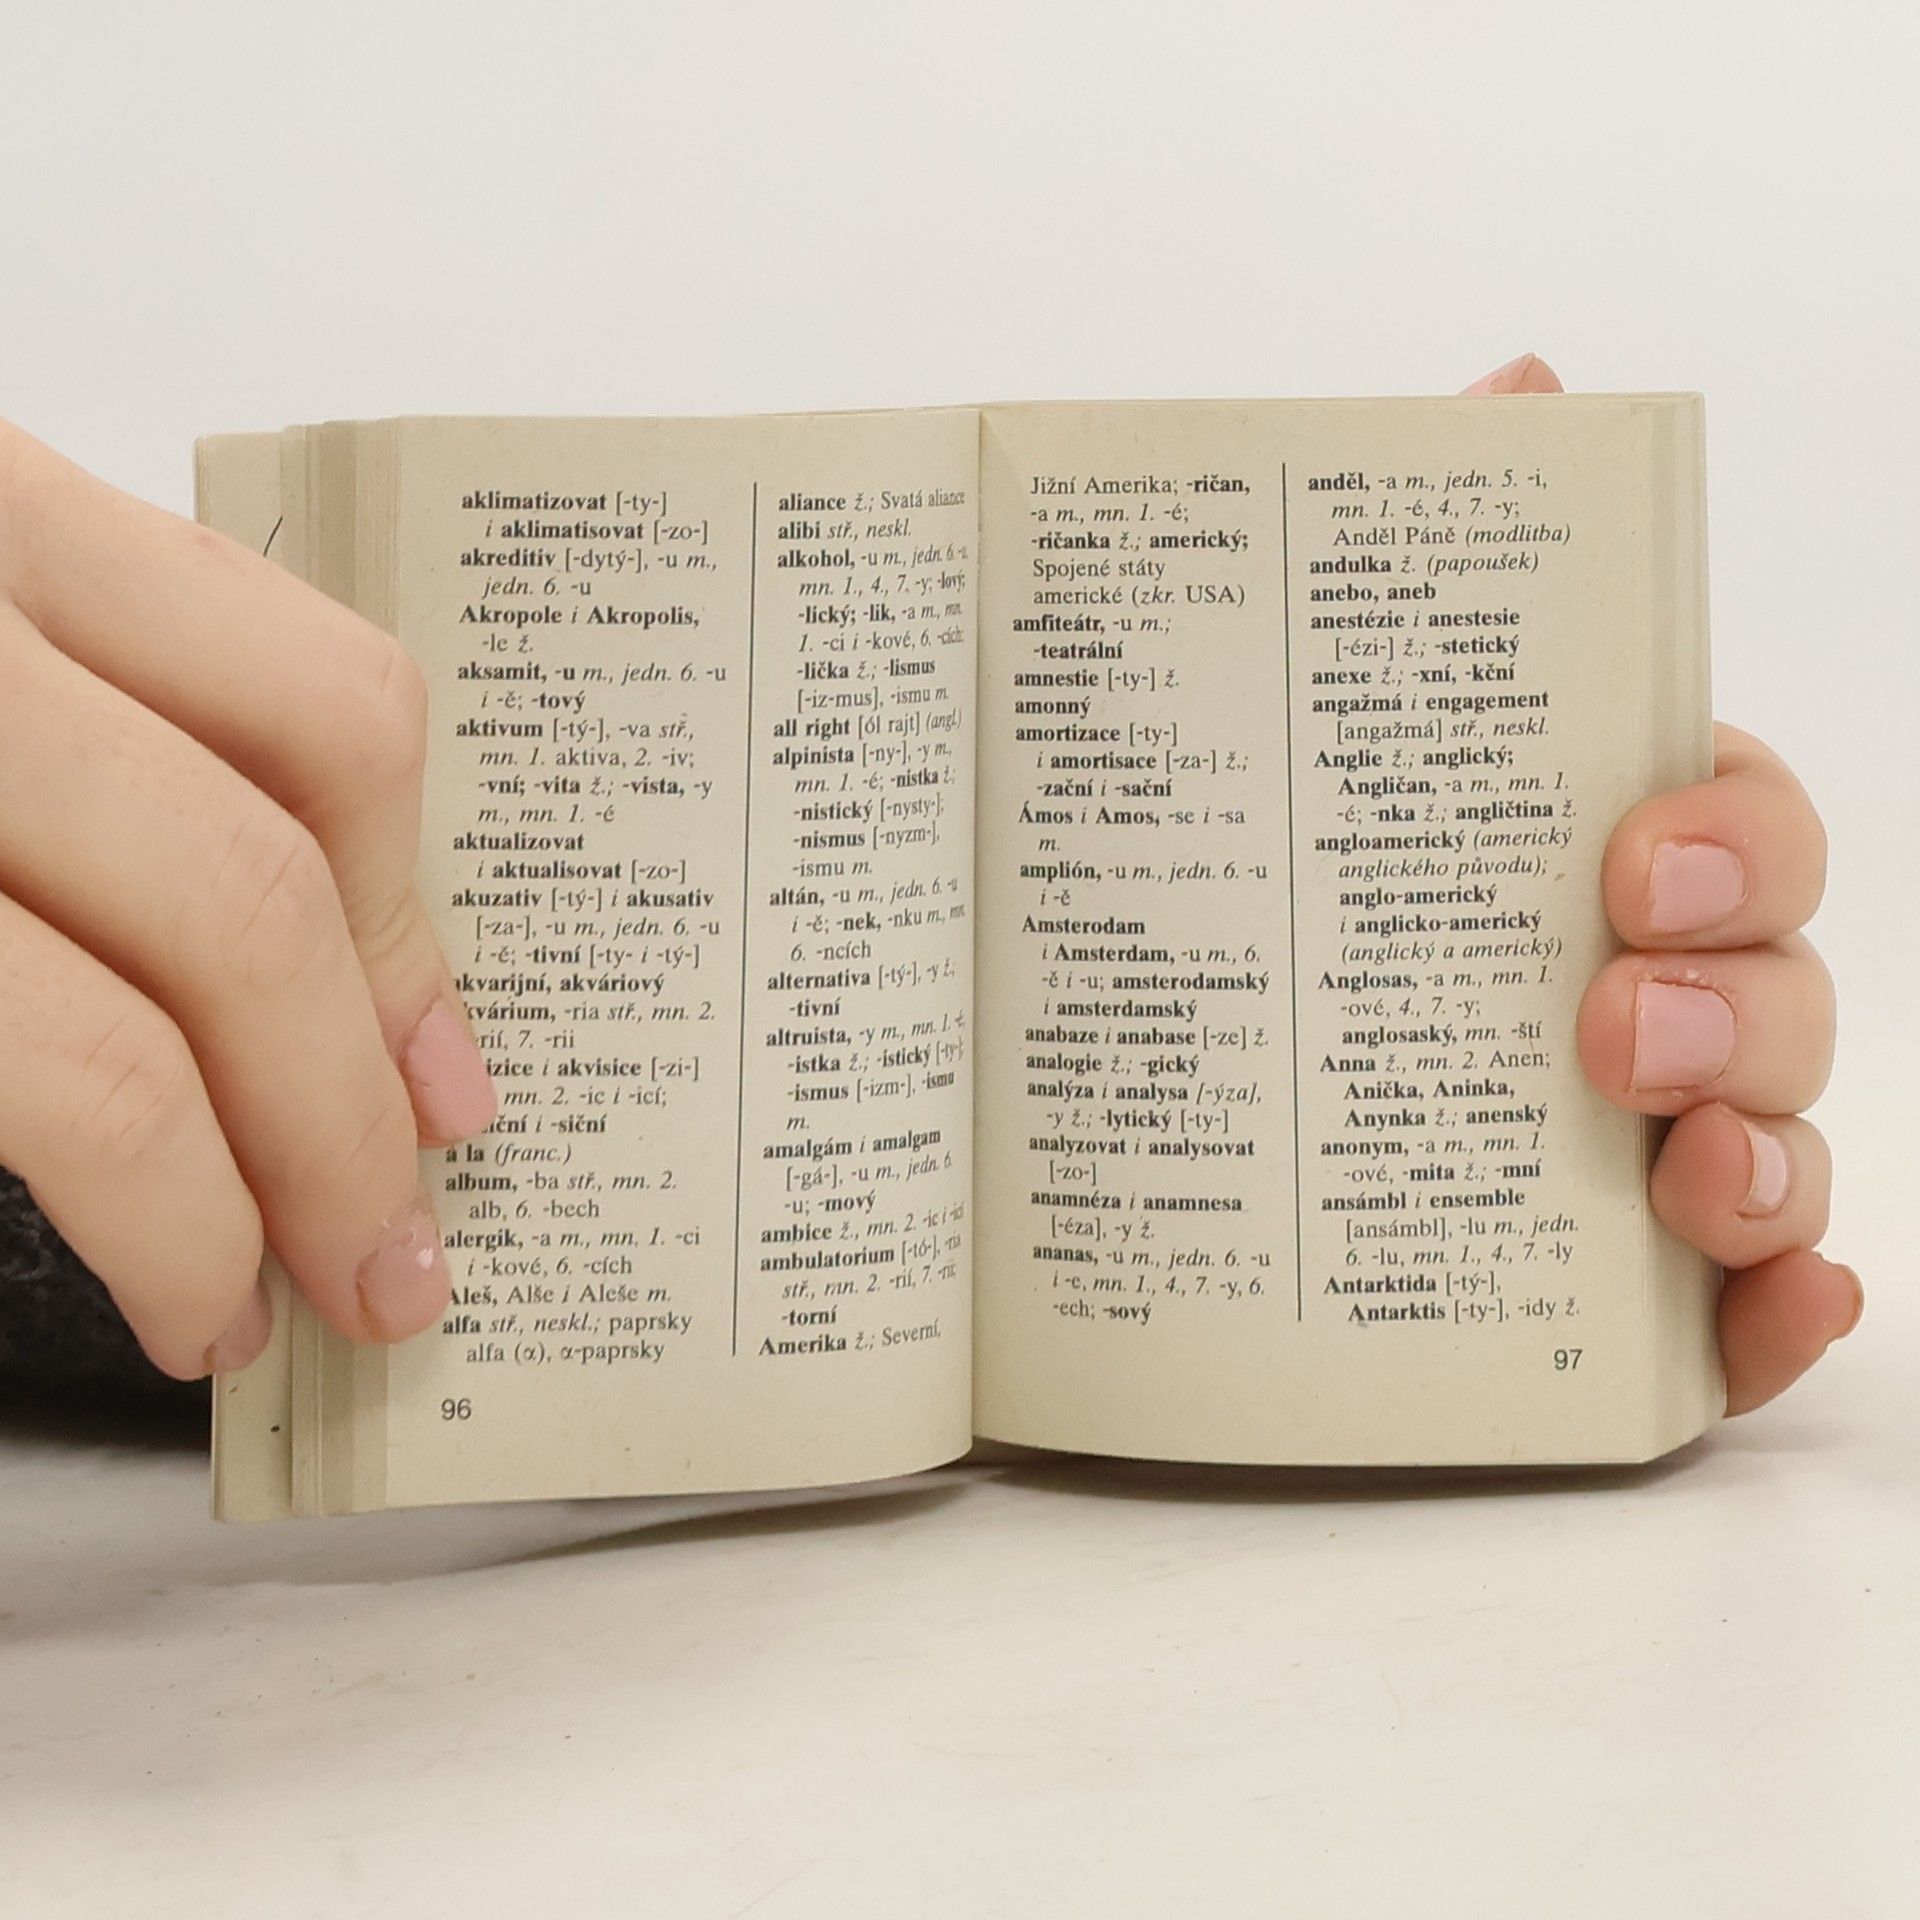 aklimatizovat [-ty-]
i aklimatisovat [-zo-]
akreditiv [-dytý-], -u m.,
jedn. 6. -u
Akropole i Akropolis,
-le ž.
aksamit, -u m., jedn. 6. -u
i -ě; -tový
aktivum [-tý-], -va stř.,
mn. 1. aktiva, 2. -iv;
-vní; -vita ž.; -vista, -y
m., mn. 1. -é
aktualizovat
i aktualisovat [-zo-]
akuzativ [-tý-] i akusativ
[-za-], -u m., jedn. 6. -u
i -ě; -tivní [-ty- i -tý-]
akvarijní, akváriový
kvárium, -ria stř., mn. 2.
-rií, 7. -rii
izice i akvisice [-zi-]
mn. 2. -ic i -icí;
-iční i -siční
à la (franc.)
album, -ba stř., mn. 2.
alb, 6. -bech
alergik, -a m., mn. 1. -ci
i -kové, 6. -cích
Aleš, Alše i Aleše m.
alfa stř., neskl.; paprsky
alfa (α), α-paprsky
96
aliance ž.; Svatá aliance
alibi stř., neskl.
alkohol, -u m., jedn. 6. -u,
mn. 1., 4., 7. -y; -lový;
-lický; -lik, -a m., mn.
1. -ci i -kové, 6. -cích;
-lička ž.; -lismus
[-iz-mus], -ismu m.
all right [ól rajt] (angl.)
alpinista [-ny-], -y m.,
mn. 1. -é; -nistka ž.;
-nistický [-nysty-];
-nismus [-nyzm-],
-ismu m.
altán, -u m., jedn. 6. -u
i -ě; -nek, -nku m., mn.
6. -ncích
alternativa [-tý-], -y ž.;
-tivní
altruista, -y m., mn. 1. -é;
-istka ž.; -istický [-ty-];
-ismus [-izm-], -ismu
m.
amalgám i amalgam
[-gá-], -u m., jedn. 6.
-u; -mový
ambice ž., mn. 2. -ic i -icí
ambulatorium [-tó-], -ria
stř., mn. 2. -rií, 7. -rii;
-torní
Amerika ž.; Severní,
Jižní Amerika; -ričan,
-a m., mn. 1. -é;
-ričanka ž.; americký;
Spojené státy
americké (zkr. USA)
amfiteátr, -u m.;
-teatrální
amnestie [-ty-] ž.
amonný
amortizace [-ty-]
i amortisace [-za-] ž.;
-zační i -sační
Ámos i Amos, -se i -sa
m.
amplión, -u m., jedn. 6. -u
i -ě
Amsterodam
i Amsterdam, -u m., 6.
-ě i -u; amsterodamský
i amsterdamský
anabaze i anabase [-ze] ž.
analogie ž.; -gický
analýza i analysa [-ýza],
-y ž.; -lytický [-ty-]
analyzovat i analysovat
[-zo-]
anamnéza i anamnesa
[-éza], -y ž.
ananas, -u m., jedn. 6. -u
i -e, mn. 1., 4., 7. -y, 6.
-ech; -sový
anděl, -a m., jedn. 5. -i,
mn. 1. -é, 4., 7. -y;
Anděl Páně (modlitba)
andulka ž. (papoušek)
anebo, aneb
anestézie i anestesie
[-ézi-] ž.; -stetický
anexe ž.; -xní, -kční
angažmá i engagement
[angažmá] stř., neskl.
Anglie ž.; anglický;
Angličan, -a m., mn. 1.
-é; -nka ž.; angličtina ž.
angloamerický (americký
anglického původu);
anglo-americký
i anglicko-americký
(anglický a americký)
Anglosas, -a m., mn. 1.
-ové, 4., 7. -y;
anglosaský, mn. -ští
Anna ž., mn. 2. Anen;
Anička, Aninka,
Anynka ž.; anenský
anonym, -a m., mn. 1.
-ové, -mita ž.; -mní
ansámbl i ensemble
[ansámbl], -lu m., jedn.
6. -lu, mn. 1., 4., 7. -ly
Antarktida [-tý-],
Antarktis [-ty-], -idy ž.
97